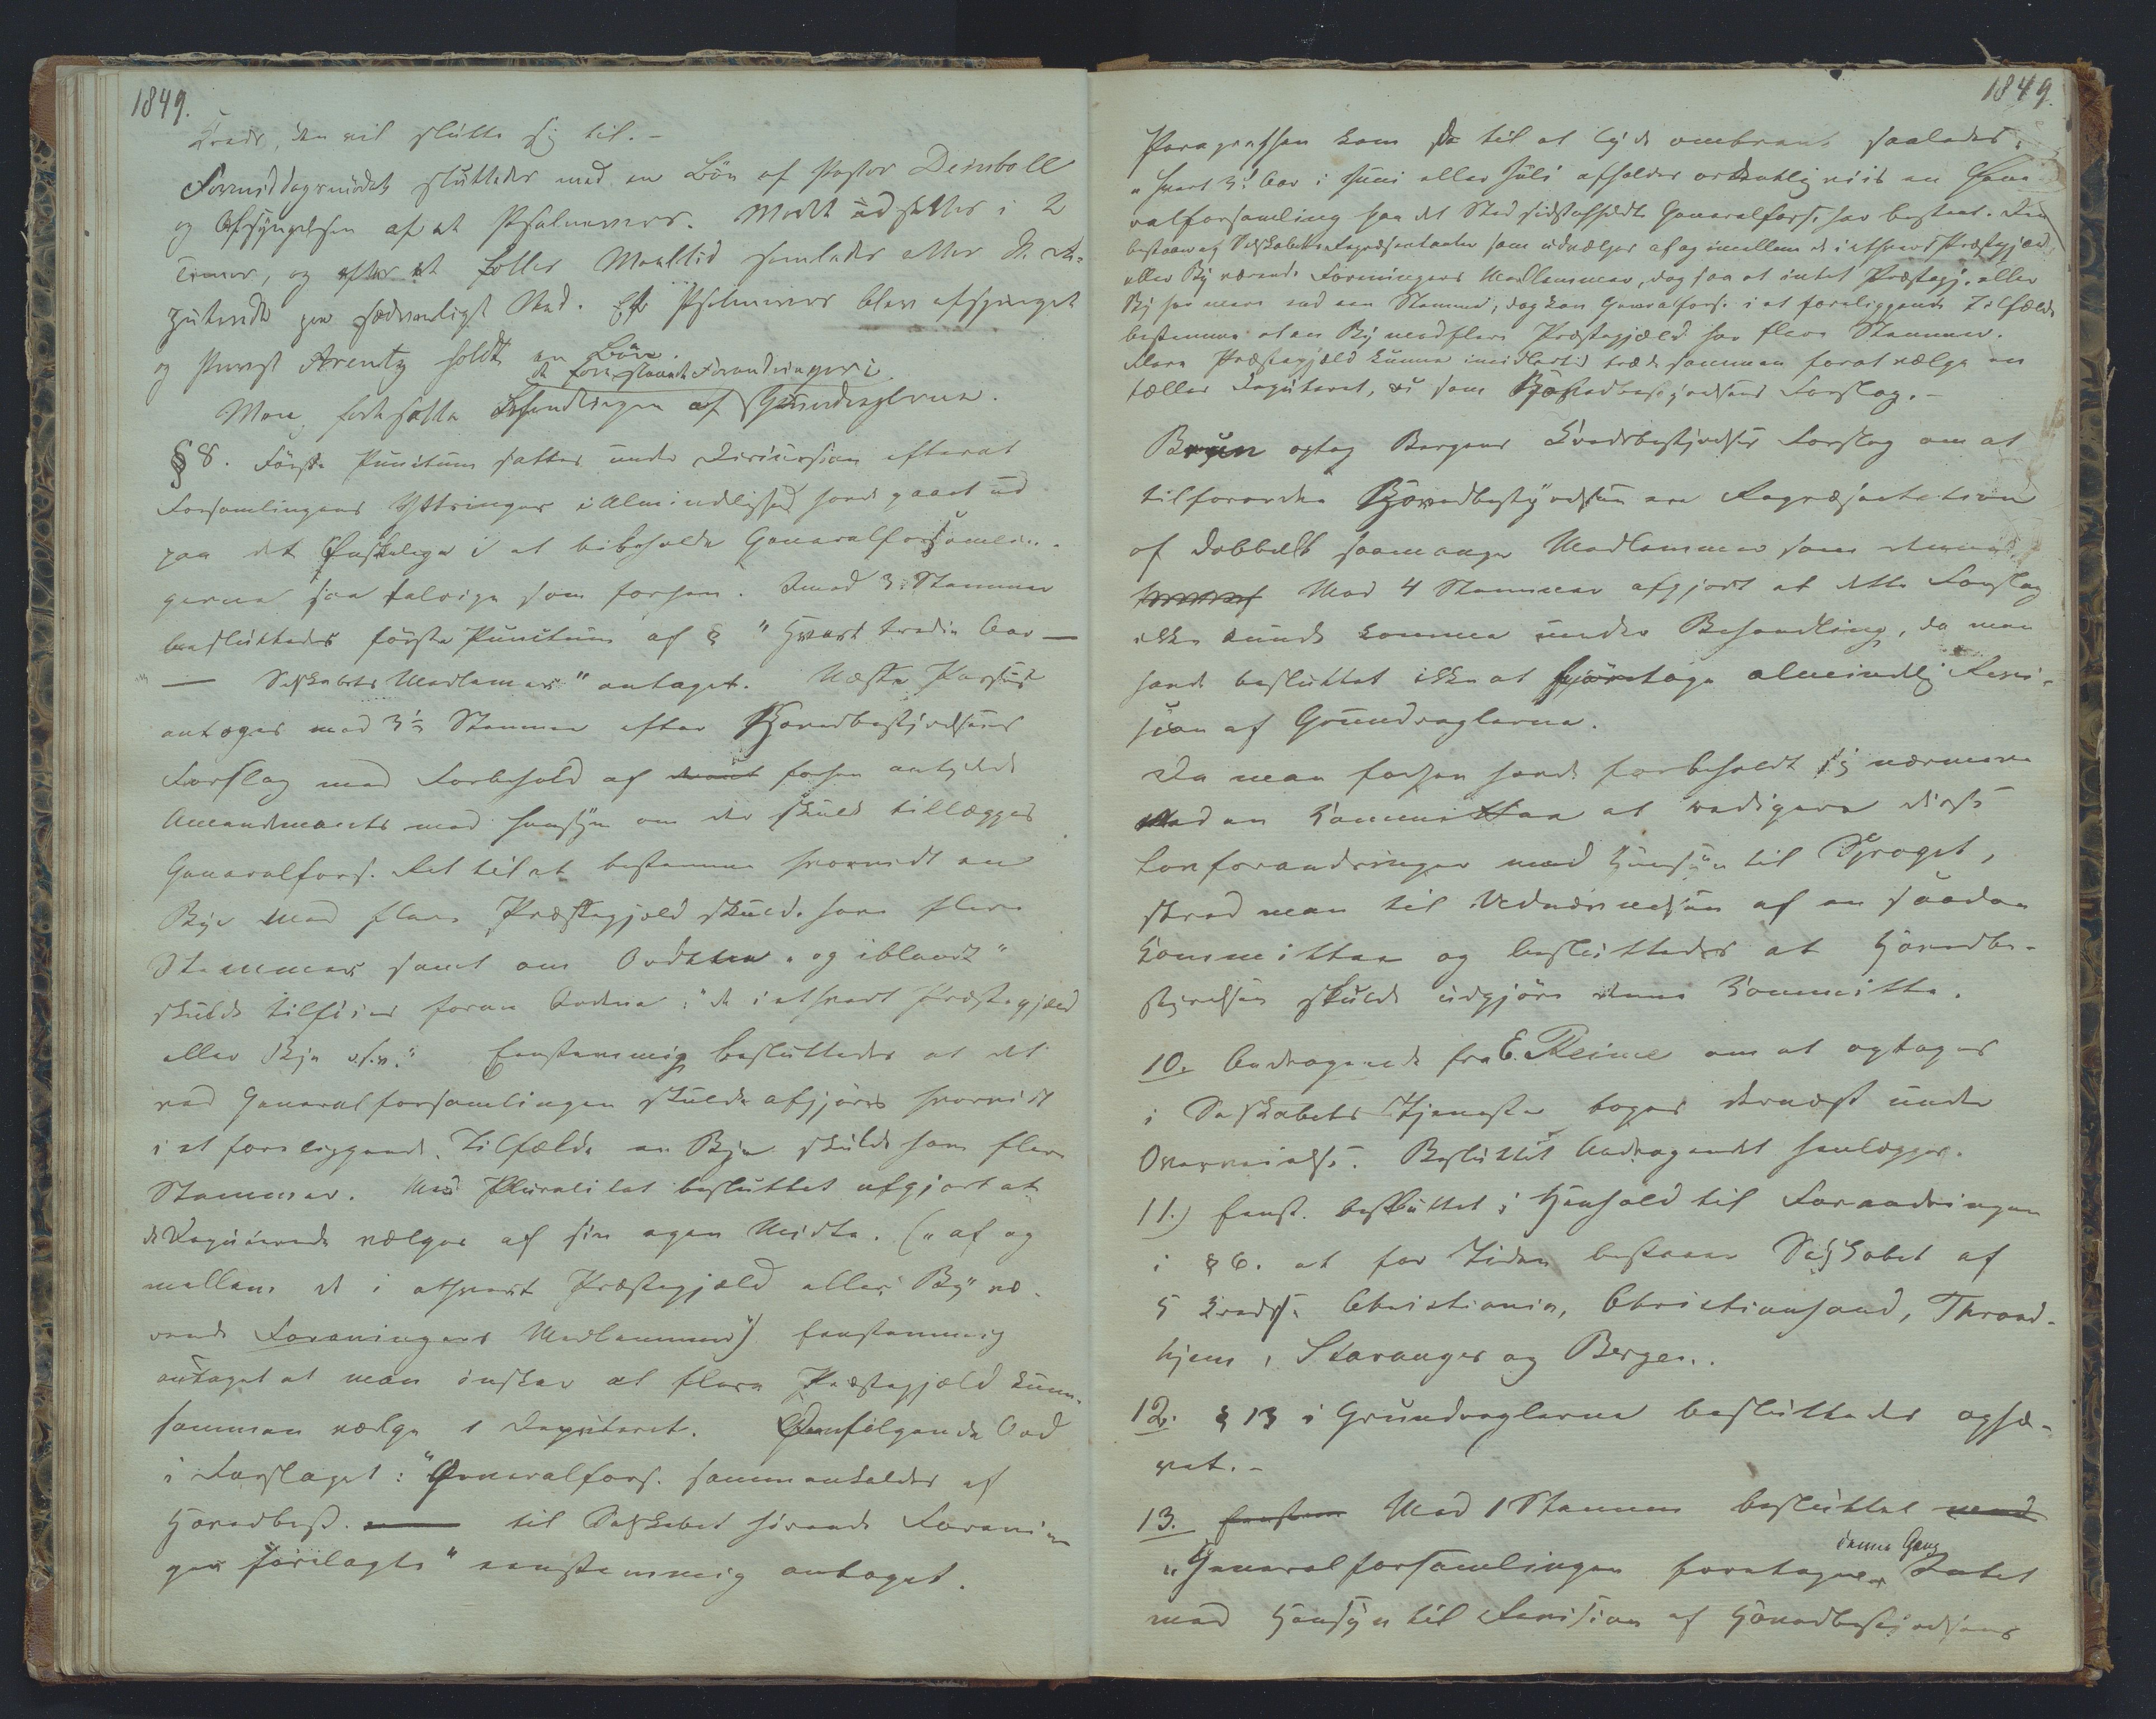 1849.
Kreds, den vil slutte sig til. -
Formiddagsmødet sluttedes med en Bön af Pastor Deinboll
og Afsyngelsen af et Psalmevers. Mödet udsattes i 2
Timer, og efter et fælles Maaltid samledes atter de De-
puterede paa sædvanligt Sted. Et Psalmevers blev afsynget
og Provst Arentz holdt en Bön.
de foreslaaede Forandringer i
Man fortsatte Behandlingen af Grundreglerne.
§ 8. Förste Punctum sattes under Discussion efterat
Forsamlingens Yttringer i Almindelighed havde gaaet ud
paa det Önskelige i at bibeholde Generalforsamlin-
gerne saa talrige som forhen. Imod 3 Stemmer
besluttedes förste Punctum af § "Hvert tredie Aar —
— Selskabets Medlemer" antaget. Næste Passus
antoges mod 3 Stemmer efter Hovedbestyrelsens
Forslag med Forbehold af forhen antydede
Amendements med Hensyn om der skulde tillægges
Generalfors. Ret til at bestemme hvorvidt en
Bye med flere Præstegjeld skulde have flere
Stemmer samt om Ordene "og iblandt"
skulde tilföies foran Ordene: "de i ethvert Præstegjeld
eller Bye o.s.v." Eenstemmig besluttedes at det
ved Generalforsamlingen skulde afgjöres hvorvidt
i et foreliggende Tilfælde en Bye skulde have flere
Stemmer. Med Pluralitet besluttet afgjort at
de Deputerede vælges af sin egen Midte. ("af og
mellem de i ethvert Præstegjeld eller By væ-
rende Foreningers Medlemmer") Eenstemmig
antaget at man önsker at flere Præstegjeld kunne
sammen vælge 1 Deputeret. Paafölgende Ord
i Forslaget: "Generalfors. sammenkaldes af
Hovedbest. — til Selskabet hörende Forenin
ger forelagte" eenstemmig antaget.
1849.
Paragraphen kom da til at lyde omtrent saaledes:
"Hvert 3die Aar i Juni eller Juli afholdes ordentligviis en Gene
ralforsamling paa det Sted sidstafholdte Generalfors. har bestemt. Den
bestaaer af Selskabets Repræsentanter som udvælges af og imellem de i ethvert Præstegjeld
eller By værende Foreningers Medlemmer, dog saa at intet Præstegj. eller
By har mere end een Stemme; dog kan Generalfors. i et foreliggende Tilfælde
bestemme at en By med flere Præstegjæld har flere Stemmer.
Flere Præstegjæld kunne imidlertid træde sammen forat vælge en
fælles Deputeret, &c som Hovedbestyrelsens Forslag. -
Bruun optog Bergens Kredsbestyrelses Forslag om at
tilforordne Hovedbestyrelsen en Repræsentation
af dobbelt saamange Medlemmer som denne.
Mod 4 Stemmer afgjort at dette Forslag
ikke kunde komme under Behandling, da man
havde besluttet ikke at foretage almindelig Revi-
sion af Grundreglerne.
Da man forhen havde forbeholdt sig nærmere
ved en Committee at redigere disse
Lovforandringer med Hensyn til Sproget,
skred man til Udnævnelsen af en saadan
Committee og besluttedes at Hovedbe-
styrelsen skulde udgjöre denne Committee.
10. Andragende fra E. Reime om at optages
i Selskabets Tjeneste toges dernæst under
Overveielse. Besluttet Andragendet henlægges.
11.) Eenst. besluttet i Henhold til Forandringen
i § 6. at for Tiden bestaaer Selskabet af
5 Kredse Christiania, Christiansand, Thrond-
hjem, Stavanger og Bergen.
12. § 13 i Grundreglerne besluttedes ophæ-
vet. -
13. Eenstem Mod 1 Stemme besluttet med
denne Gang
"Generalforsamlingen foretager Intet
med Hensyn til Revision af Hovedbestyrelsens